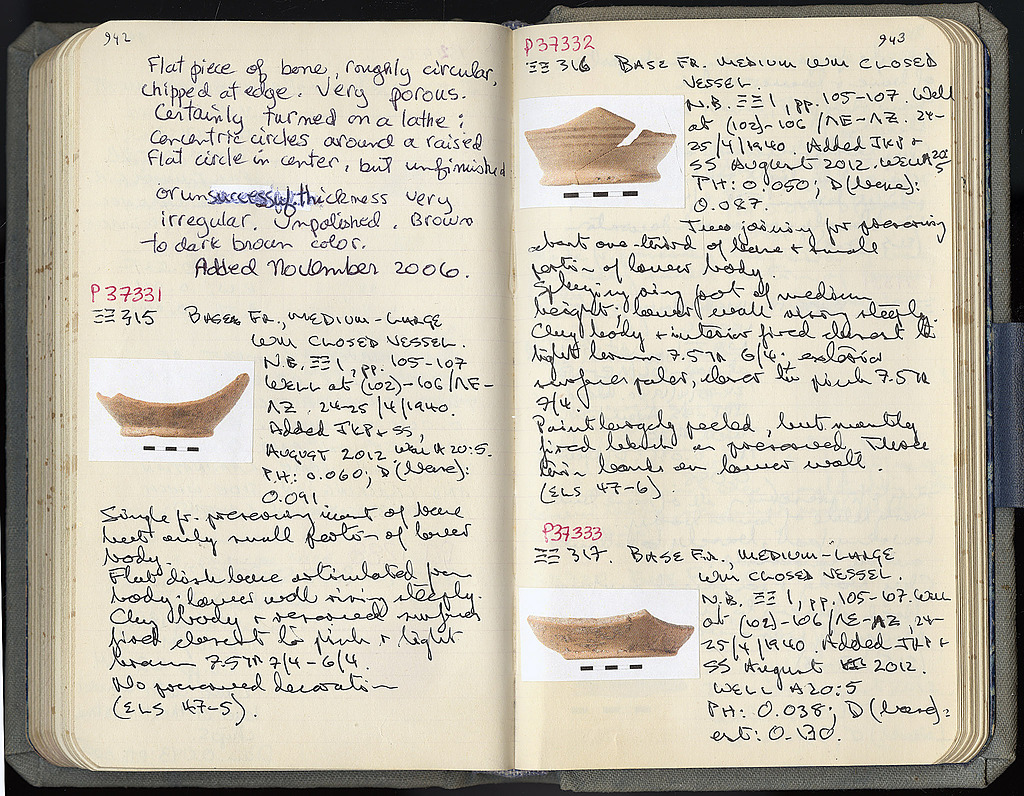 942
Flat piece of bone, roughly circular,
chipped at edge. Very porous.
Certainly turned on a lathe;
concentric circles around a raised
flat circle in center, but unfinished
or unsuccessful. thickness very
irregular. Unpolished. Brown
to dark brown color.
Added November 2006.
P 37331
ΞΞ 315 BASE FR., MEDIUM-LARGE
WM CLOSED VESSEL.
N.B. ΞΞ 1, pp. 105-107
WELL at (102)-106/ΛΕ-
ΛΖ. 24-25/4/1940.
Added JKP + SS,
AUGUST 2012 Well A 20:5.
P.H.: 0.060; D (base):
0.091.
Single fr. preserving most of base
but only small portion of lower
body.
Flat disk base articulated from
body; lower wall rising steeply.
Clay body + reserved surfaces
fired closest to pink + light
brown 7.5YR 7/4-6/4.
No preserved decoration
(ELS 47-5).
943
P 37332
ΞΞ 316 BASE FR. MEDIUM WM CLOSED
VESSEL.
N.B. ΞΞ 1, pp. 105-107. Well
at (102)-106/ΛΕ-ΛΖ. 24-
25/4/1940. Added JKP +
SS August 2012. WELL A 20:
5
PH: 0.050; D (base):
0.087.
Two joining frr preserving
about one-third of base + small
portion of lower body.
Splaying ring foot of medium
height; lower wall rising steeply.
Clay body + interior fired closest to
light brown 7.5YR 6/4; exterior
surfaces paler, closer to pink 7.5YR
7/4.
Paint largely peeled, but mostly
fired black as preserved. Three
thin bands on lower wall.
(ELS 47-6).
P37333
ΞΞ 317. BASE FR., MEDIUM-LARGE
WM CLOSED VESSEL.
N.B. ΞΞ 1, pp. 105-107. Well
at (102)-106/ΛΕ-ΛΖ, 24-
25/4/1940. Added JKP +
SS August 2012.
WELL A20:5
PH: 0.038; D (base):
est: 0.130.